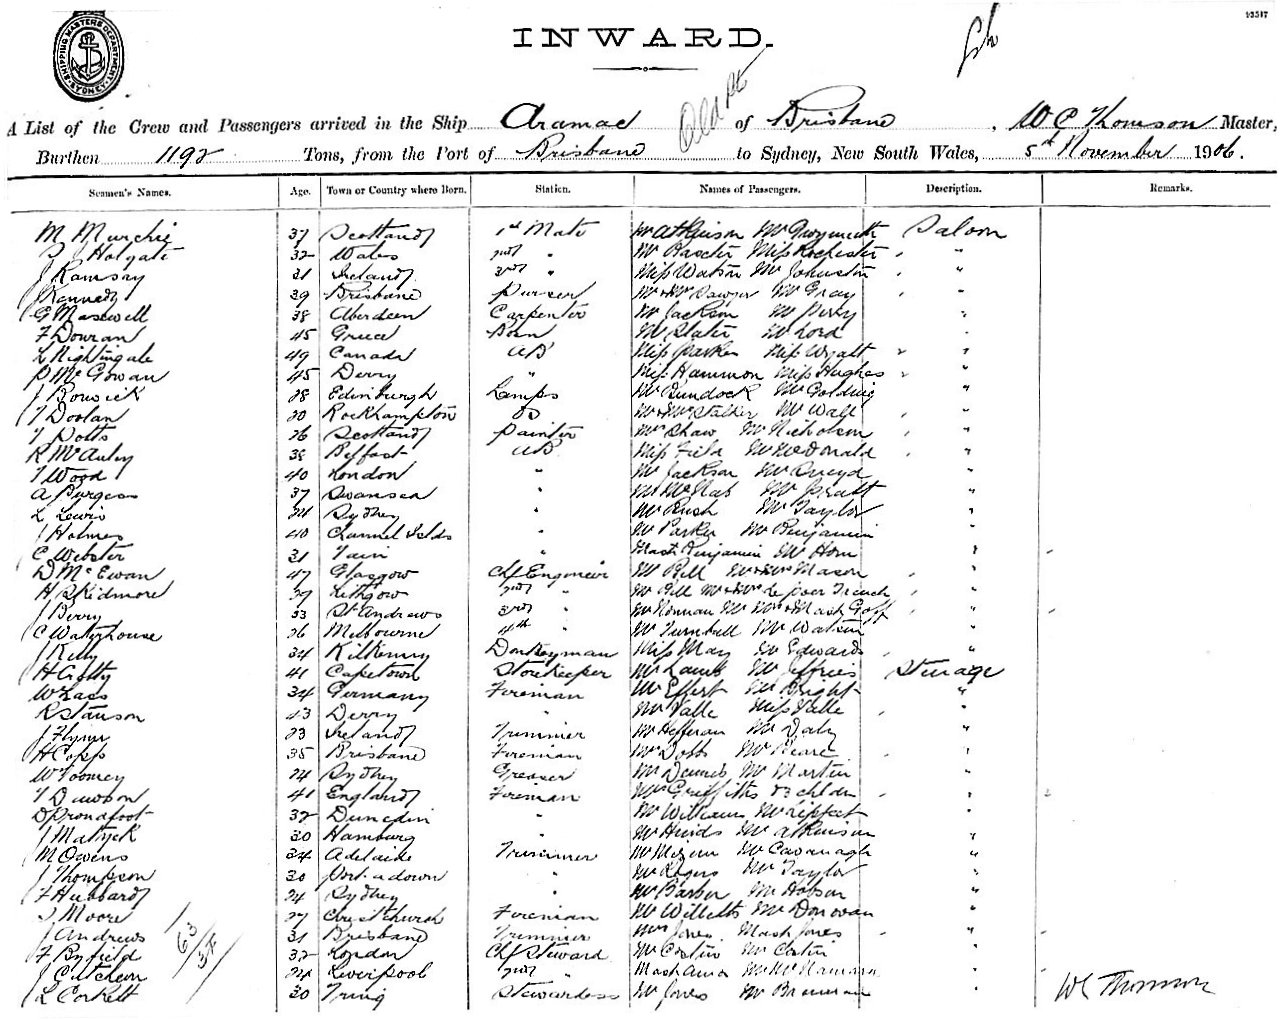 93517
SHIPPING MASTERS DEPARTMENT SYDNEY
INWARD.
A List of the Crew and Passengers arrived in the Ship Aramac of Brisbane, W C Thomson Master,
Burthen 1192 Tons, from the Port of Brisbane to Sydney, New South Wales, 5th November 1906.
Seamen's Names. Age. Town or Country where Born. Station. Names of Passengers. Description. Remarks.
M Murchie 37 Scotland 1st Mate Mr Atkinson Mr Gwynneth Saloon
J Holgate 32 Wales 2nd " Mr Baxter Miss Rochester "
J Ramsay 31 Ireland 3rd " Miss Watson Mr Johnston "
J Kennedy 39 Brisbane Purser Mr & Mrs Sawyer Mr Gray "
G Maxwell 38 Aberdeen Carpenter Mr Jackson Mr Perry "
F Dowran 45 Greece Bosn Mr Slater Mr Lord "
L Nightingale 49 Canada AB Miss Parker Miss Wyatt "
P McGowan 45 Derry " Miss Hammon Miss Hughes "
J Bowick 28 Edinburgh Lamps Mr Bundock Mr Golding "
T Doolan 20 Rockhampton OS Mr & Mrs Stalker Mr Wall "
T Potts 26 Scotland Painter Mrs Shaw Mr Nicholson "
R McAuley 38 Belfast AB Miss Field Mr McDonald "
T Wood 40 London " Mr Jackson Mr "
A Burgess 37 Swansea " Mr McNab Mr Pratt "
L Lewis 24 Sydney " Mr Rush Mr Taylor "
J Holmes 40 Channel Islds " Mr Parker Mr Benjamin "
C Webster 31 Tain " Mast Benjamin Mr Horn "
D McEwan 47 Glasgow Chf Engineer Mr Bell Mr & Mrs Mason "
H Skidmore 27 Lithgow 2nd " Mr Bell Mr & Mrs de French "
J Berry 33 St Andrews 3rd " Mr Norman Mr Mrs & Mast Goff "
C Waterhouse 26 Melbourne 4th " Mr Turnbull Mr Watson "
J Kelly 34 Kilkenny Donkeyman Miss May Mr Edwards "
H Crofty 41 Capetown Storekeeper Mr Lamb Mr Jeffries Steerage
W Lass 34 Germany Fireman Mr Effert Mr Bright "
R Stanson 43 Derry " Mr Valle Miss Valle "
J Flynn 23 Ireland Trimmer Mr Heffernan Mr Daly "
H Capps 35 Brisbane Fireman Mr Dobbs Mr Pearce "
W Toomey 24 Sydney Greaser Mr Dennis Mr Martin "
T Dawson 41 England Fireman Mrs Griffiths & 3 chldn "
D Proudfoot 32 Dunedin " Mr Williams Mr Lippert "
J Matyck 30 Hamburg " Mr Hinds Mr Atkinson "
M Owens 34 Adelaide Trimmer Mr Mr Cavanagh "
J Thompson 30 Portadown " Mr Rogers Mr Taylor "
F Hubbard 24 Sydney " Mr Barber Mr Hobson "
J Moore 27 Christchurch Fireman Mr Willetts Mr Donovan "
J Andrews 31 Brisbane Trimmer Mrs Jones Mast Jones "
F Byfield 32 London Chf Steward Mr Costin Mr Costin "
J Cutcheon 24 Liverpool 2nd " Mast Mr McNamara "
L Corkett 30 Tring Stewardess Mr Jones Mr Brennan "
W C Thomson